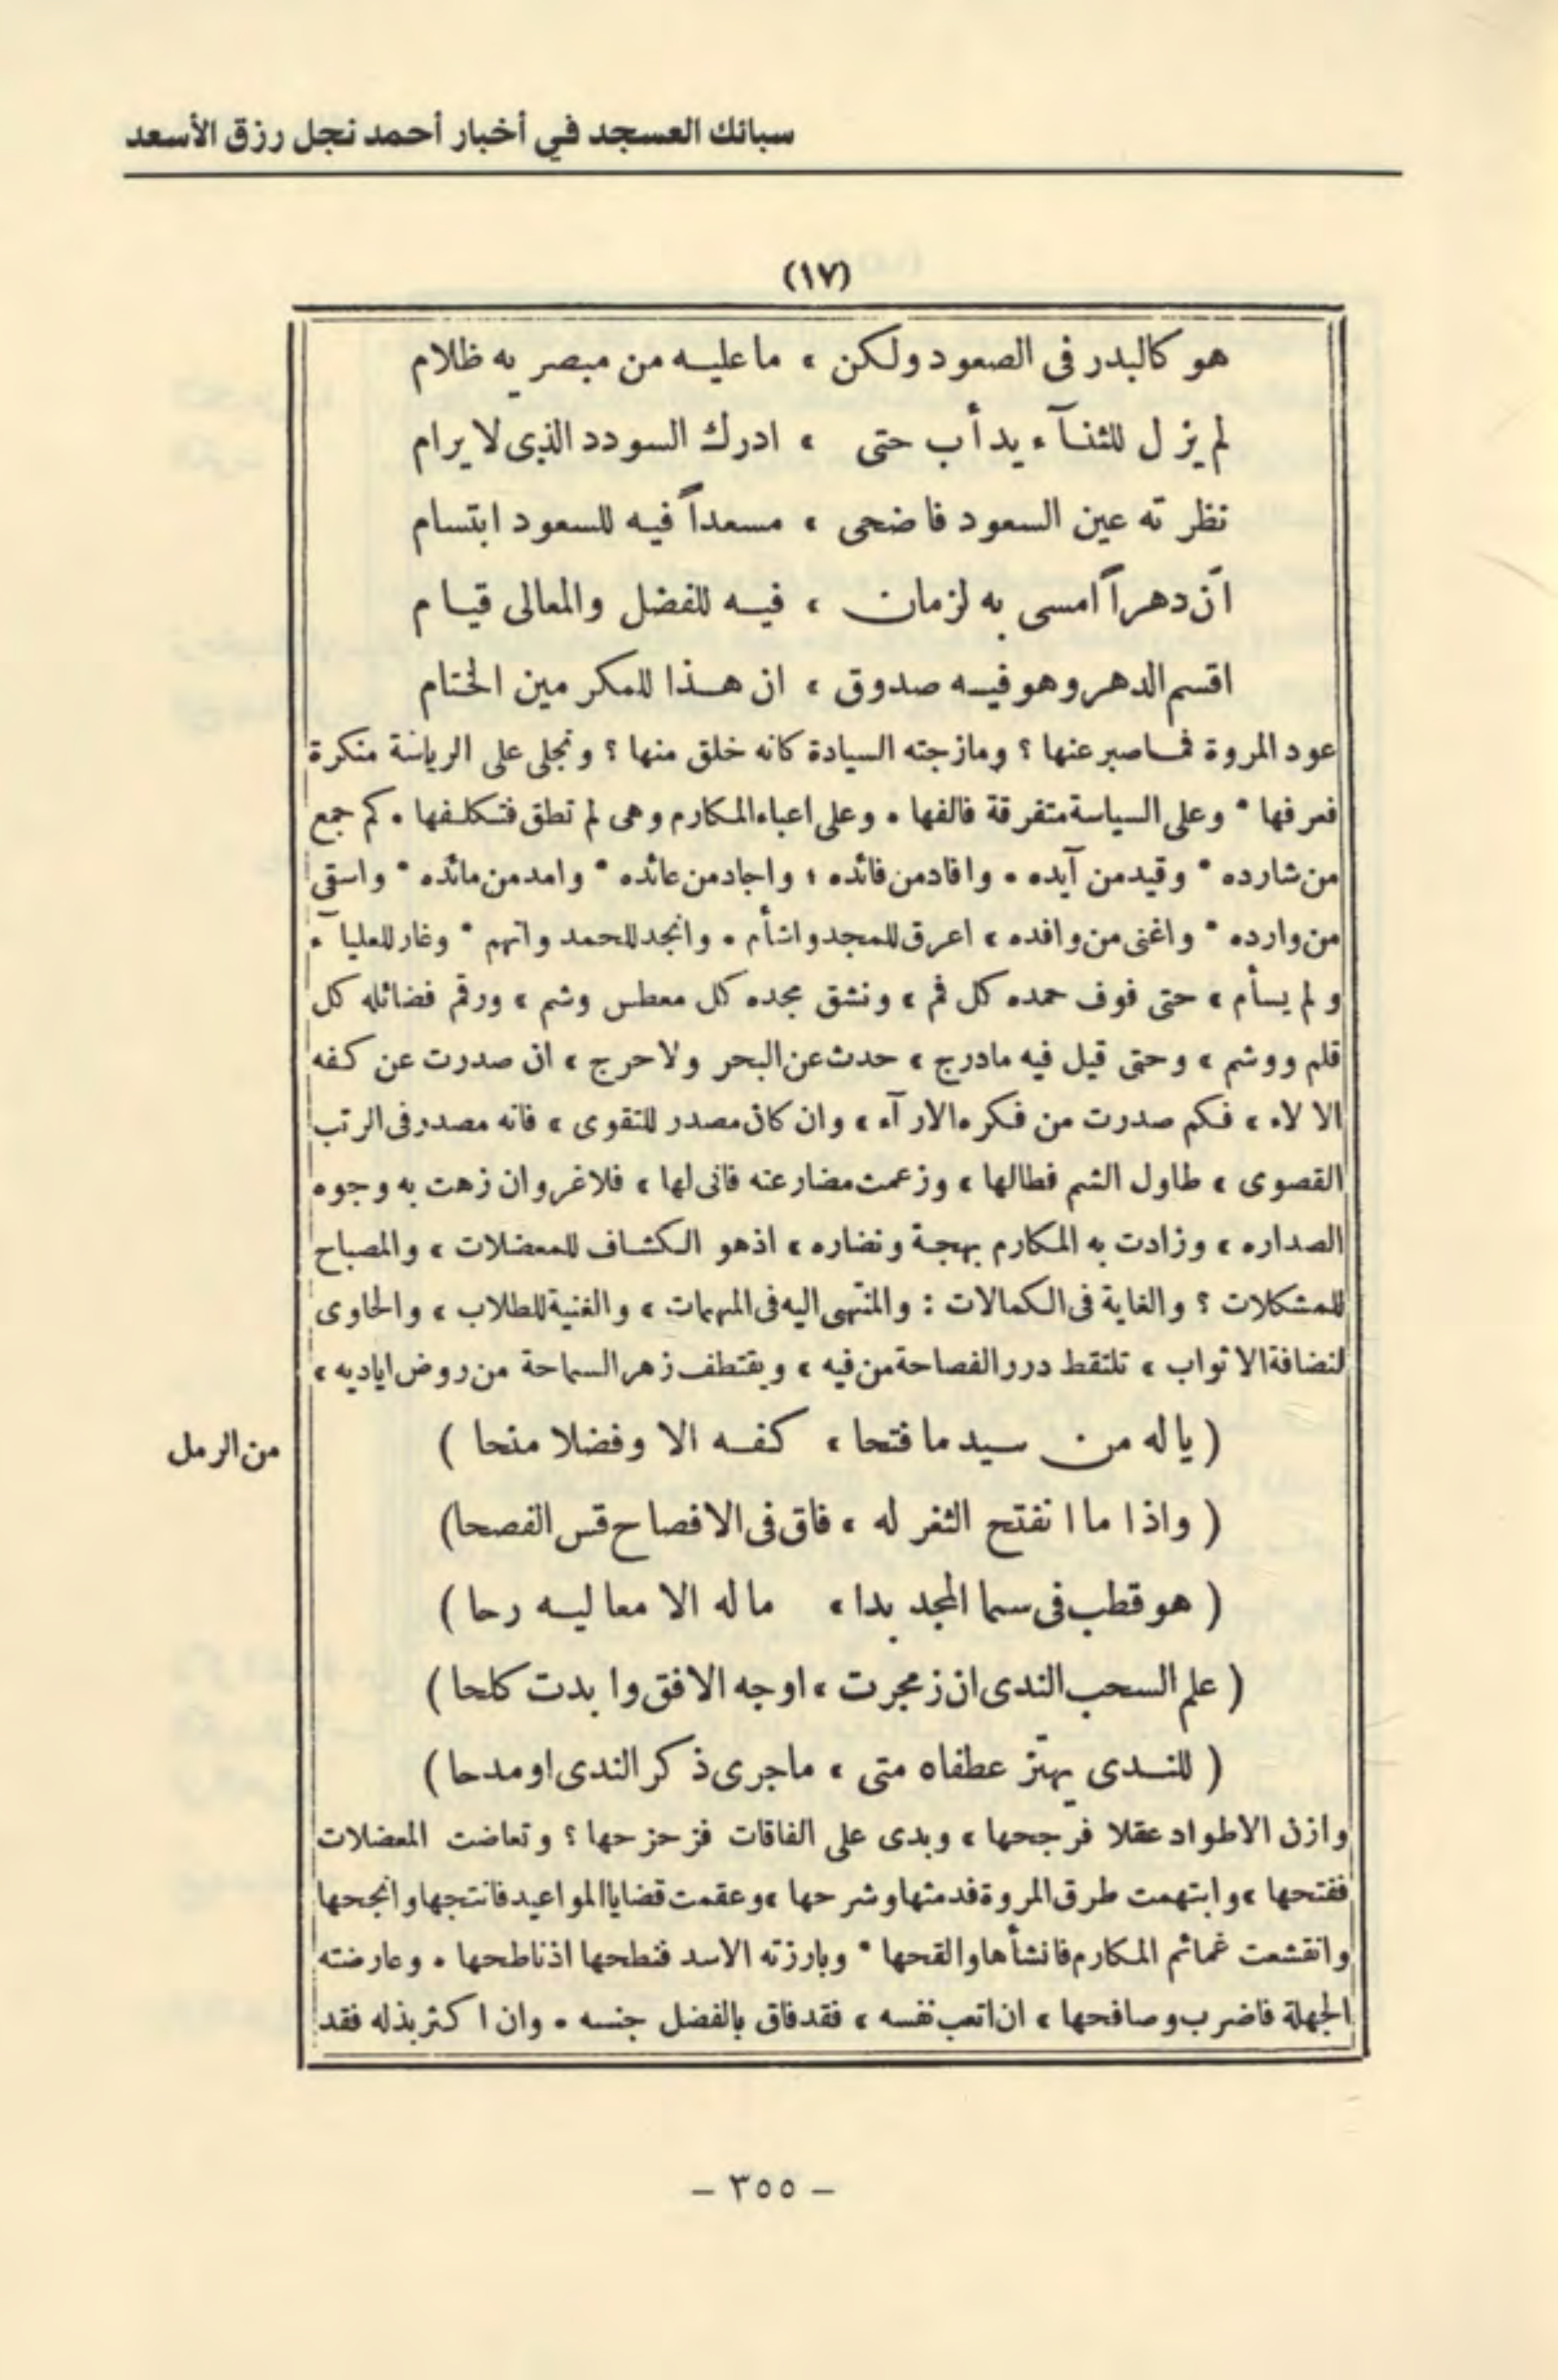 سبائك العسجد في أخبار أحمد نجل رزق الأسعد
(١٧)
هو كالبدر فى الصعود ولكن ، ما عليه من مبصر يه ظلام
لم يزل للثنآء يدأب حتى ، ادرك السودد الذى لا يرام
نظر ته عين السعود فاضحى ، مسعداً فيه للسعود ابتسام
انّ دهراً امسى به لزمان ، فيه للفضل والمعالى قيام
اقسم الدهر وهو فيه صدوق ، ان هذا للمكر مين الختام
عود المروة فما صبر عنها ؟ ومازجته السيادة كانه خلق منها ؟ ونجلى على الرياسة منكرة
فعرفها * وعلى السياسة متفرقة فالفها . وعلى اعباء المكارم وهى لم تطق فتكلفها . كم جمع
من شارده * وقيد من آيده . وافاد من فائده ، واجاد من عائده * وامد من مائده * واسقى
من وارده * واغنى من وافده ، اعرق للمجد واشأم . وانجد للحمد واتهم * وغار للعليآء
ولم يسأم ، حتى فوف حمده كل فم ، ونشق مجده كل معطس وشم ، ورقم فضائله كل
قلم ووشم ، وحتى قيل فيه مادرج ، حدث عن البحر ولا حرج ، ان صدرت عن كفه
الا لاء ، فكم صدرت من فكره الار آء ، وان كان مصدر للتقوى ، فانه مصدر فى الرتب
القصوى ، طاول الشم فطالها ، وزعمت مضارعنه فانى لها ، فلا غر وان زهت به وجوه
الصداره ، وزادت به المكارم بهجة ونضاره ، اذ هو الكشاف للمعضلات ، والمصباح
للمشكلات ؟ والغاية فى الكمالات : والمنتهى اليه فى المهمات ، والغنية للطلاب ، والحاوى
لنضافة الاثواب ، تلتقط درر الفصاحة من فيه ، ويقتطف زهر السماحة من روض اياديه ،
( يا له من سيد ما فتحا ، كفه الا وفضلا منحا )
من الرمل
( واذا ما انفتح الثغر له ، فاق فى الافصاح قس الفصحا )
( هو قطب فى سما المجد بدا ، ما له الا معاليه رحا )
( علم السحب الندى ان زمجرت ، اوجه الافق وا بدت كلحا )
( للندى يهتّز عطفاه متى ، ما جرى ذكر الندى او مدحا )
وازن الاطواد عقلا فرجحها ، وبدى على الفاقات فزحزحها ؟ وتعاضت المعضلات
ففتحها ، وابتهمت طرق المروة فدمثها وشرحها ، وعقمت قضايا المواعيد فانتجها وانجحها
وانقشعت غمائم المكارم فانشأها والقحها * وبارزته الاسد فنطحها اذ ناطحها . وعارضته
الجهلة فاضرب وصافحها ، ان اتعب نفسه ، فقد فاق بالفضل جنسه . وان اكثر بذله فقد
- ٣٥٥ -